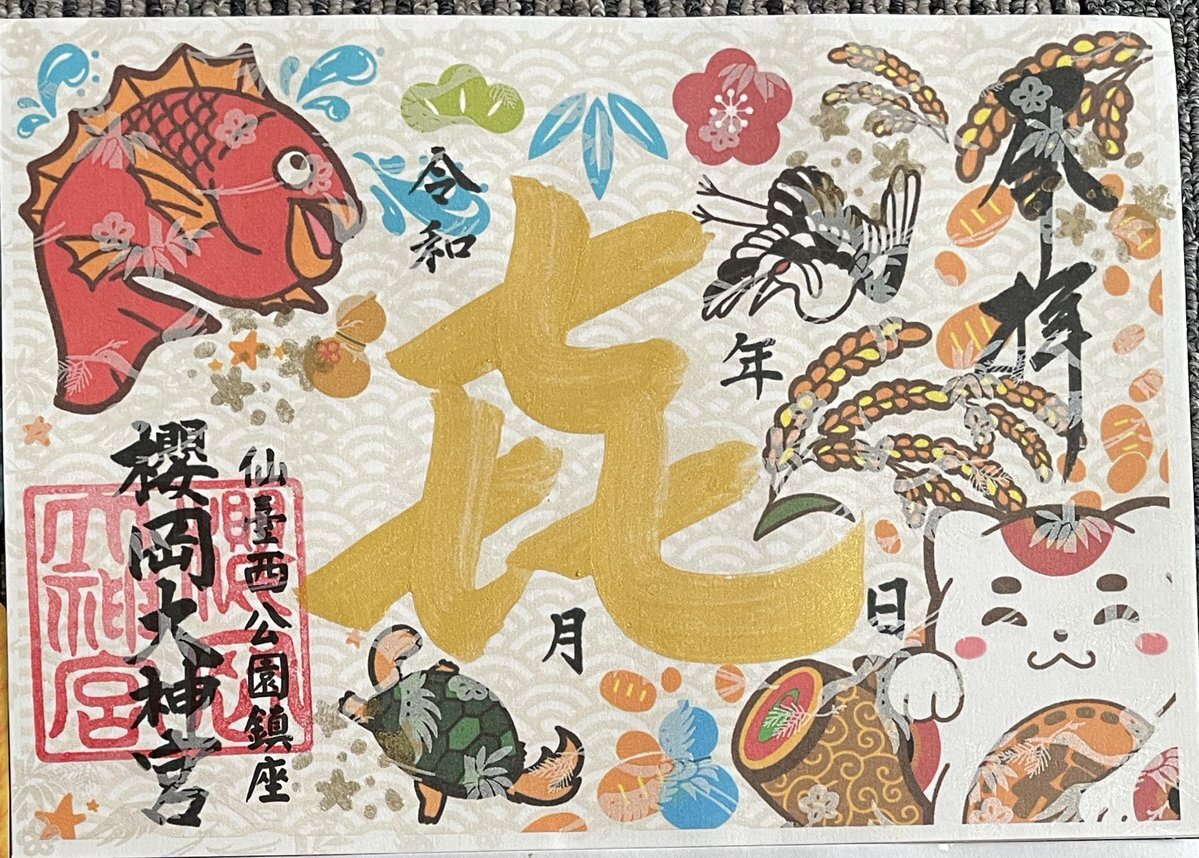 奉拝
㐂
令和
年
月
日
仙臺西公園鎮座
櫻岡大神宮
櫻岡
大神宮